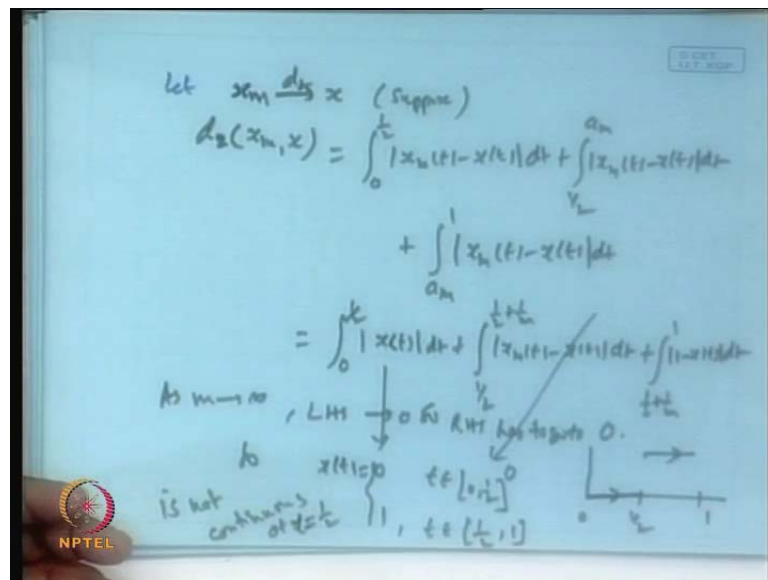 Let xₘ →d₂ x (Suppose)
d₂(xₘ, x) = ∫₀^{1/2} |xₘ(t) - x(t)| dt + ∫_{1/2}^{aₘ} |xₘ(t) - x(t)| dt
+ ∫_{aₘ}^{1} |xₘ(t) - x(t)| dt
= ∫₀^{1/2} |x(t)| dt + ∫_{1/2}^{1/2+1/m} |xₘ(t) - x(t)| dt + ∫_{1/2+1/m}^{1} |1 - x(t)| dt
As m→∞, LHS → 0 so RHS has to go to 0.
So x(t) = { 0 t ∈ [0, 1/2] 0
1, t ∈ [1/2, 1]
is not
continuous
at x = 1/2
0 1/2 1
NPTEL